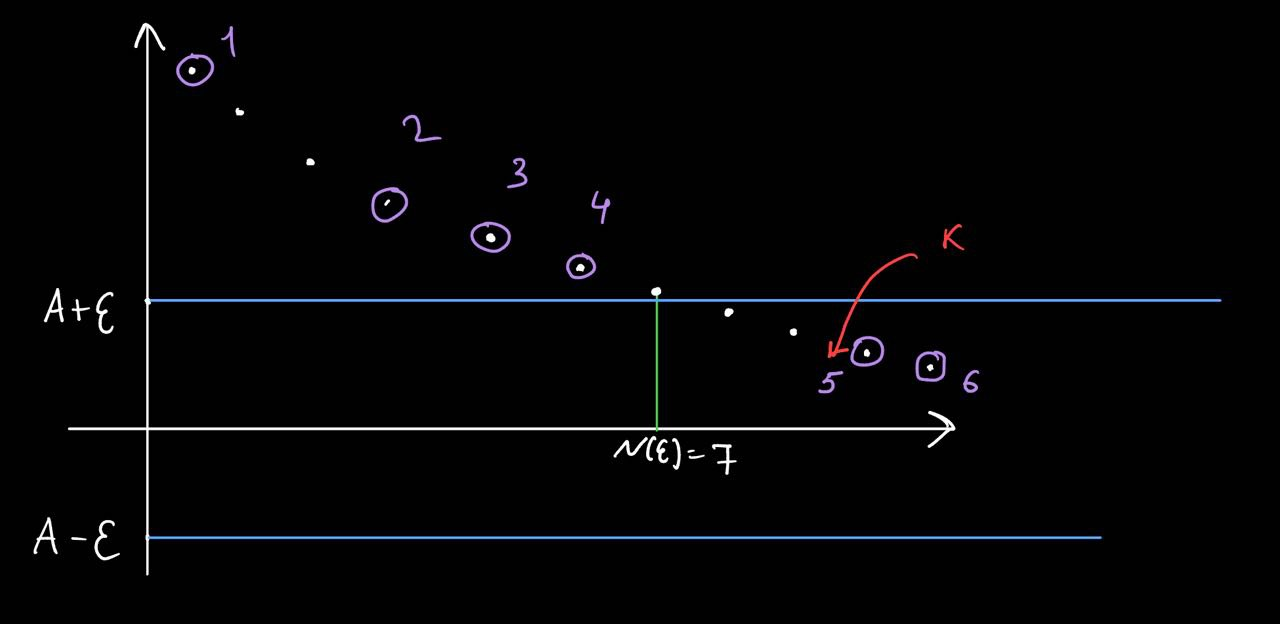 1
2
3
4
K
A+ε
5
6
N(ε)=7
A-ε